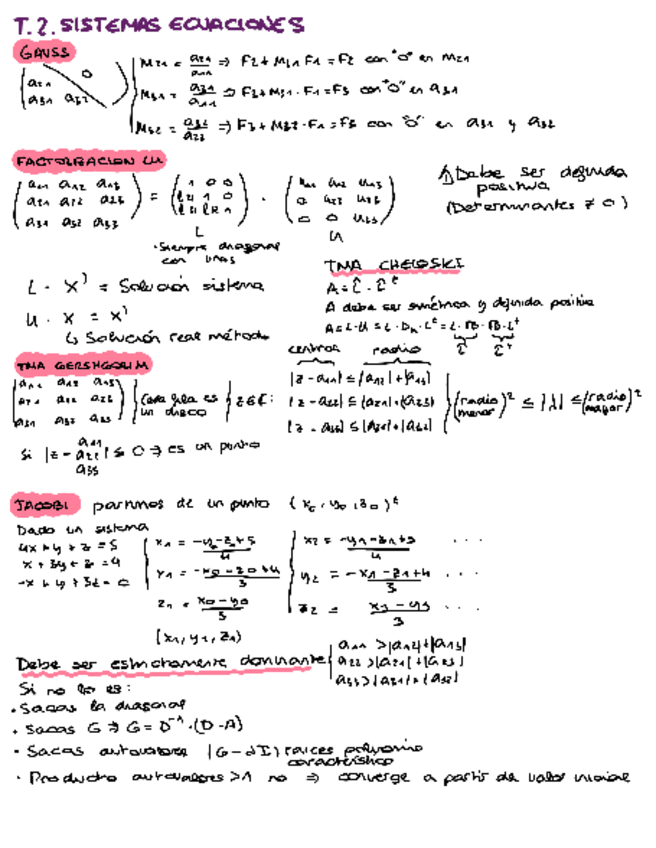 T.2. SISTEMAS ECUACIONES
GAUSS
0
a21
a31 a32
M21 = a21/a11 ⇒ F2 + M21 F1 = F2 con "0" en M21
M31 = a31/a11 ⇒ F3 + M31 · F1 = F3 con "0" en a31
M32 = a32/a22 ⇒ F3 + M32 · F1 = F3 con "0" en a31 y a32
FACTORIZACION LU
a11 a12 a13
a21 a22 a23
a31 a32 a33
=
1 0 0
1 0
1
·
u11 u12 u13
0 u22 u23
0 0 u33
L
U
· Siempre diagonal
con unos
1) Debe ser definida
positiva
(Determinantes ≠ 0)
L · X' = Solución sistema
U · X = X'
↳ Solución real método
TMA CHELOSKI
A = L̂ · L̂ᵗ
A debe ser simétrica y definida positiva
A = L·U = L · D · Lᵗ = L · √D · √D · Lᵗ
L̂ L̂ᵗ
TMA GERSHGORIM
a11 a12 a13
a21 a22 a23
a31 a32 a33
Cada fila es
un disco
z ∈ ℂ:
centros radio
|z - a11| ≤ |a12| + |a13|
|z - a22| ≤ |a21| + |a23|
|z - a33| ≤ |a31| + |a32|
(radio menor)² ≤ |λ| ≤ (radio mayor)²
Si |z - a11 a22 a33| ≤ 0 ⇒ es un punto
JACOBI partimos de un punto (x0, y0, z0)ᵗ
Dado un sistema
4x + y + z = 5
x + 3y + z = 4
-x + y + 3z = 0
x1 = (-y0 - z0 + 5)/4
y1 = (-x0 - z0 + 4)/3
z1 = (x0 - y0)/3
(x1, y1, z1)
x2 = (-y1 - z1 + 5)/4 ...
y2 = (-x1 - z1 + 4)/3 ...
z2 = (x1 - y1)/3 ...
Debe ser estrictamente dominante
a11 > |a12| + |a13|
a22 > |a21| + |a23|
a33 > |a31| + |a32|
Si no lo es:
· Sacas la diagonal
· Sacas G ⇒ G = D⁻¹ · (D - A)
· Sacas autovalores |G - λI| raices polinomio
característico
· Producto autovalores > 1 no ⇒ converge a partir de valor inicial